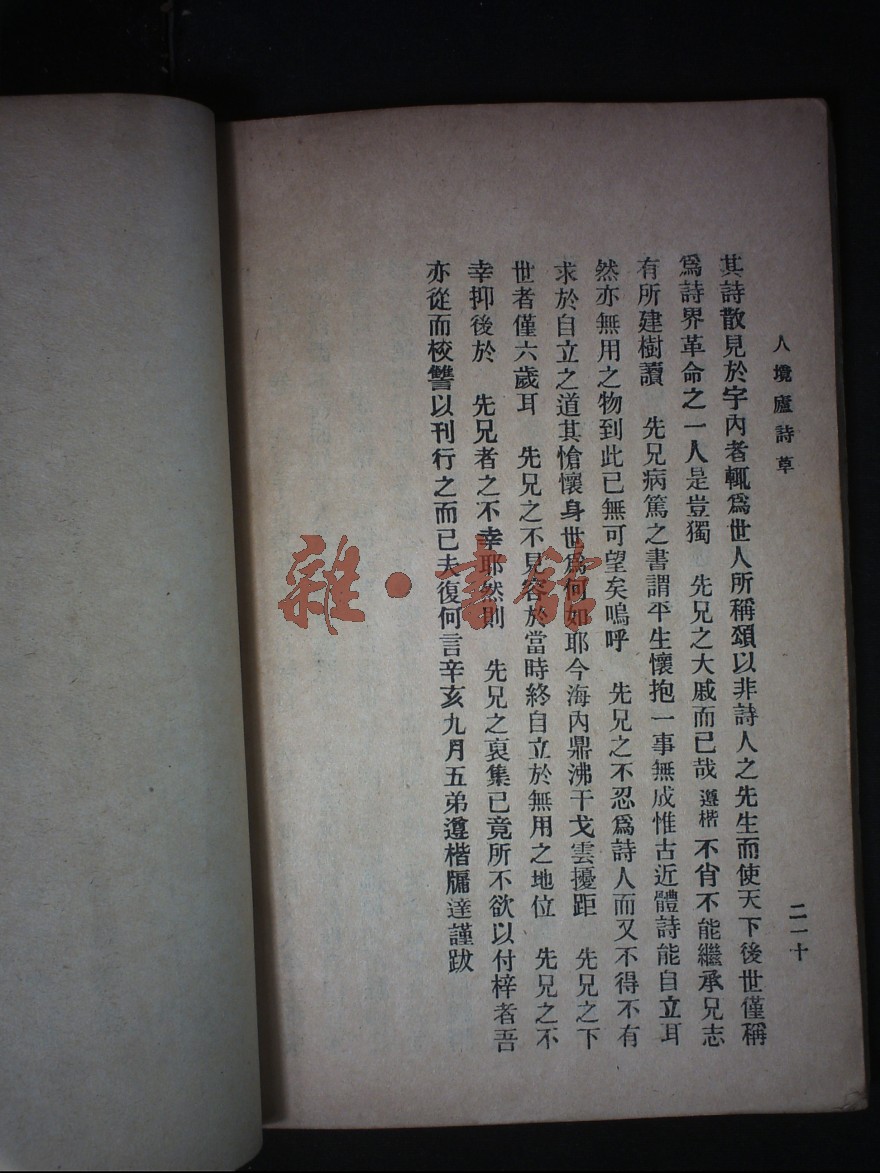 人境廬詩草
二一十
其詩散見於宇內者輒爲世人所稱頌以非詩人之先生而使天下後世僅稱
爲詩界革命之一人是豈獨　先兄之大戚而已哉遵楷不肖不能繼承兄志
有所建樹讀　先兄病篤之書謂平生懷抱一事無成惟古近體詩能自立耳
然亦無用之物到此已無可望矣嗚呼　先兄之不忍爲詩人而又不得不有
求於自立之道其愴懷身世爲何如耶今海內鼎沸干戈雲擾距　先兄之下
世者僅六歲耳　先兄之不見容於當時終自立於無用之地位　先兄之不
幸抑後於　先兄者之不幸耶然則　先兄之裒集已竟所不欲以付梓者吾
亦從而校讐以刊行之而已夫復何言辛亥九月五弟遵楷牖達謹跋
雜·書館